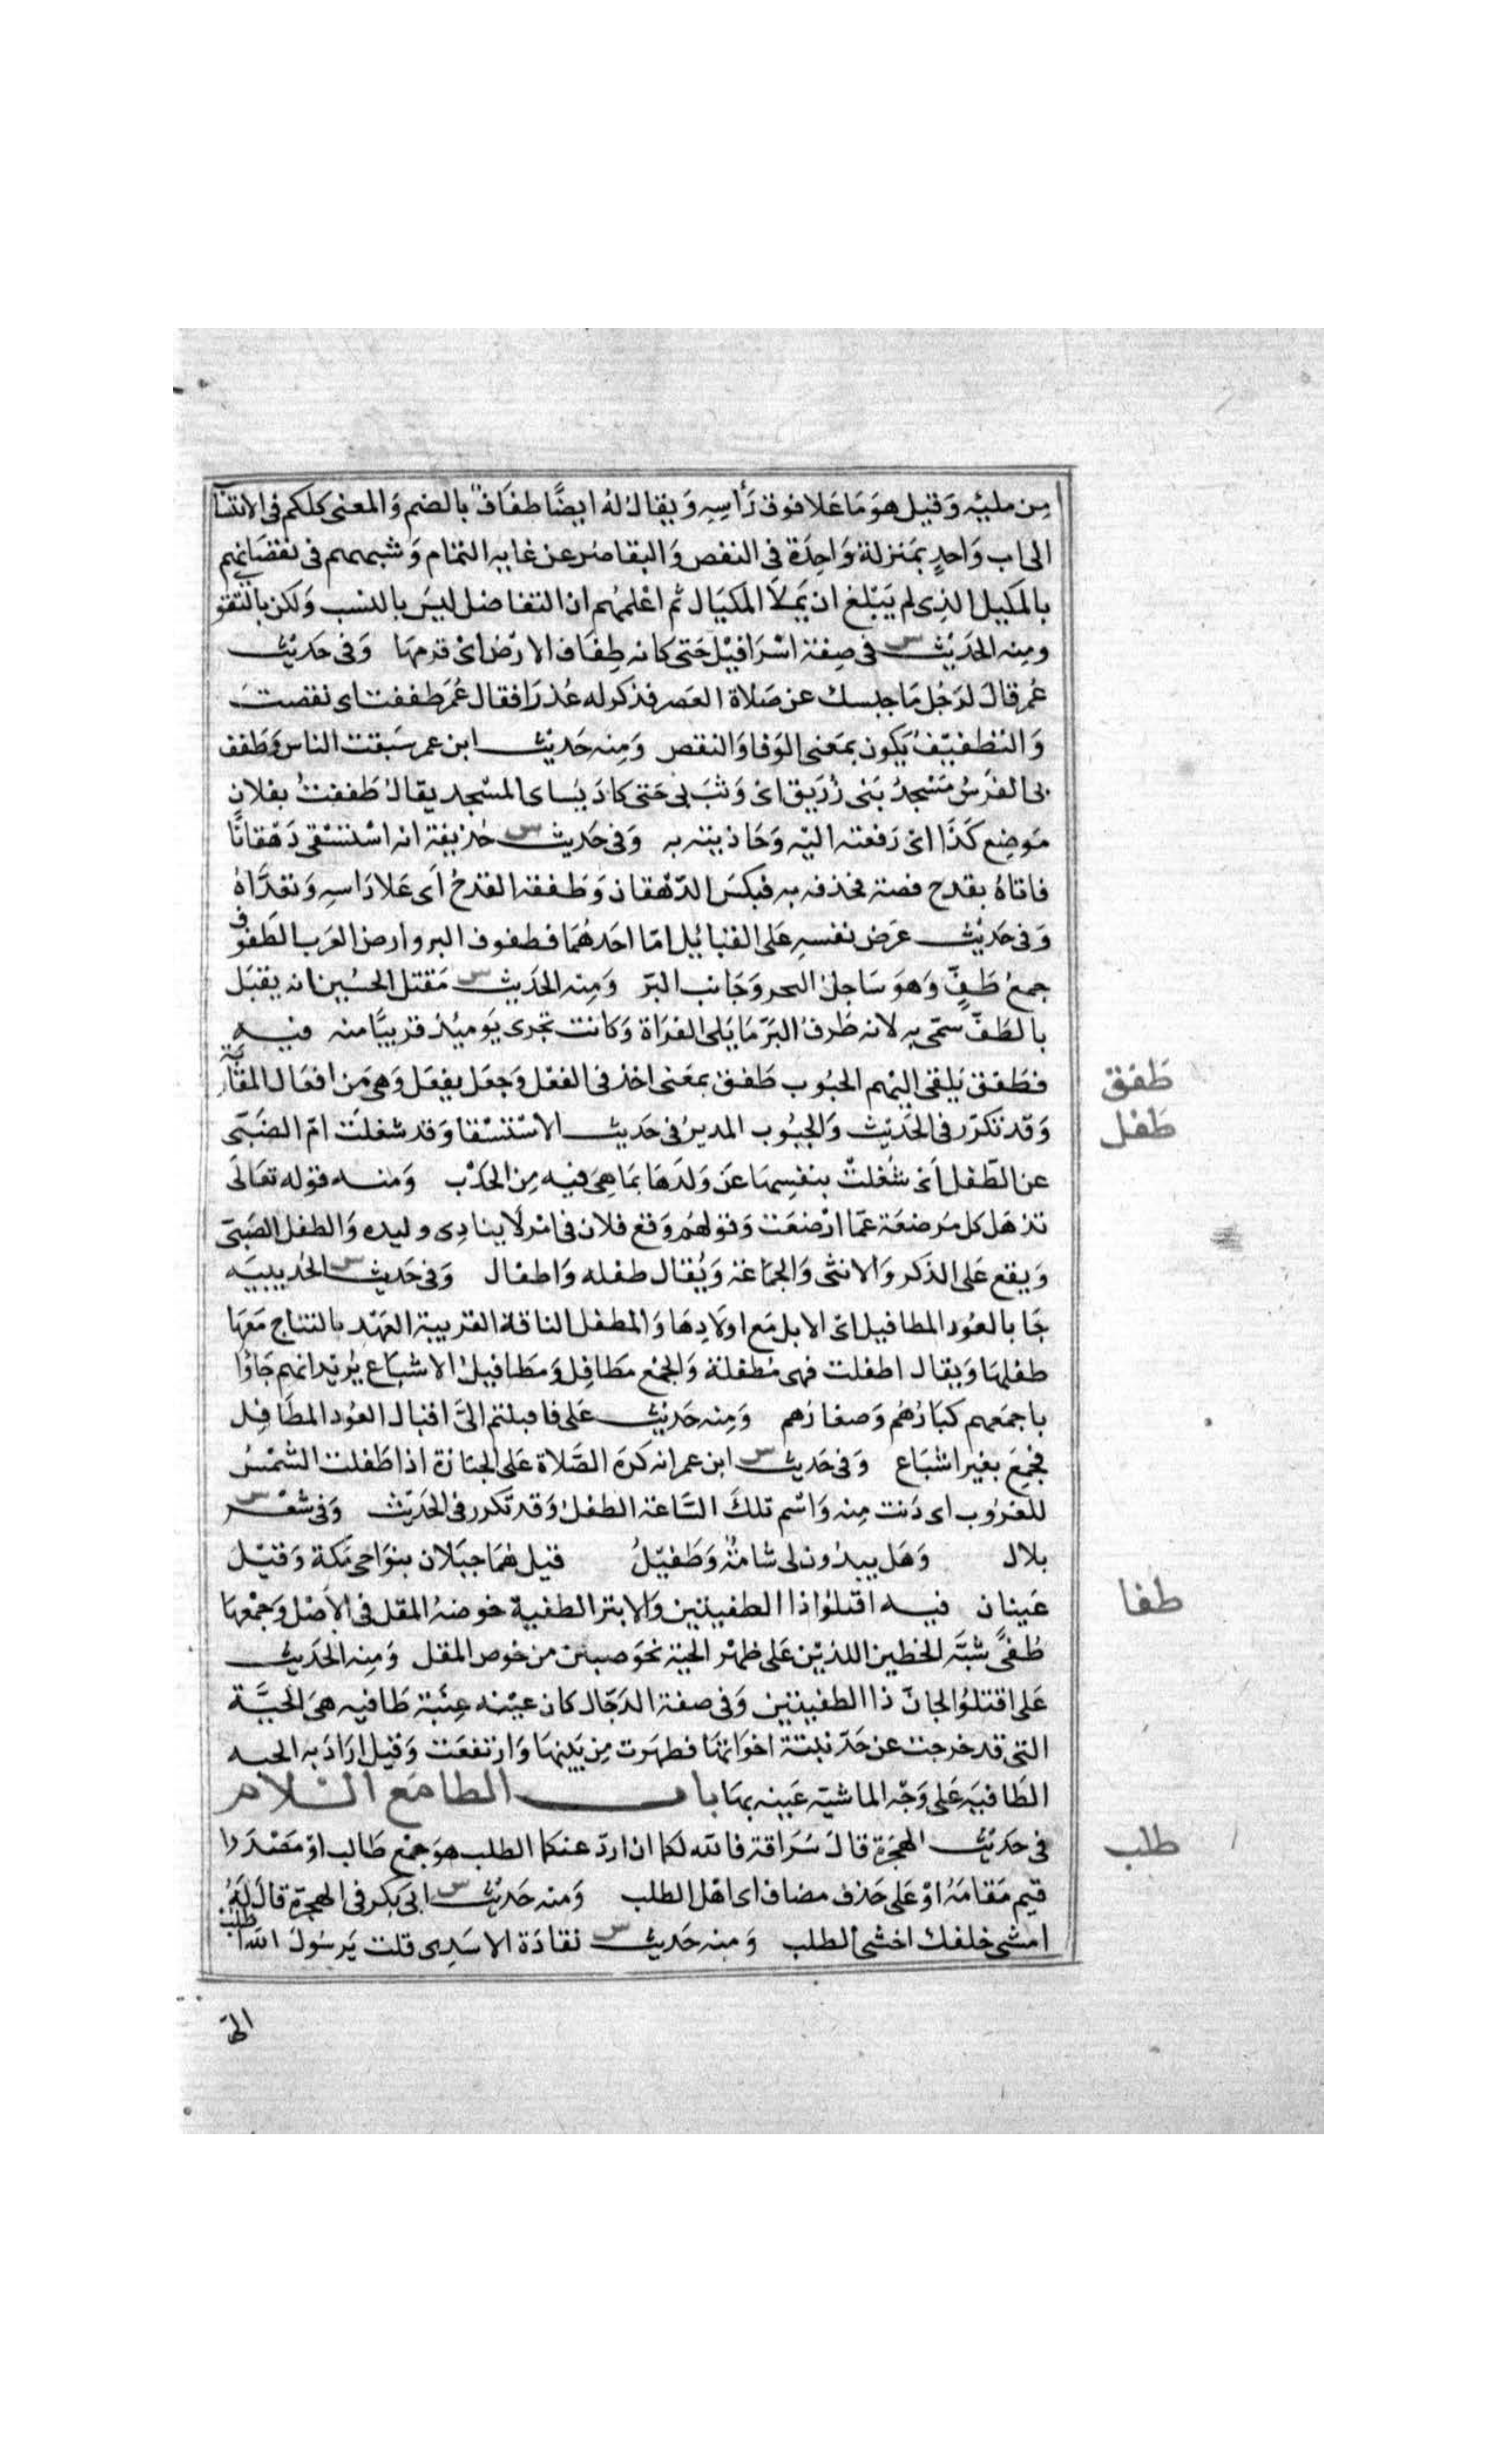 مِن مليِه وَقيل هوَ مَا عَلا فوق رَأسِهِ وَيقال لهُ ايضًا طفَافٌ بالضم وَالمعنى كلكم فى الانتسا
الى اب وَاحدٍ بمَنزلة وَاحِدَة فى النقص وَالتقاصُر عن غايه التمَام وَشبههم فى نقصَانهم
بالمكيل الذِى لم يَبْلغ ان يَمْلأ المكيَال ثم اعْلمهُم ان التفاضل ليسَ بالنسب وَلكن بالتقوى
ومِنه الحَدِيْث س فى صِفة اسْرَافيْل حَتى كانه طِفاف الارْض اىْ قرمهَا وَفى حَدِيْث
عُمر قالَ لرَجُل مَا حبسك عن صَلاة العَصر فذكر له عُذرًا فقال عُمَر طففت اى نقصتَ
وَالتطفيْفُ يَكون بمَعنى الوَفا وَالنقص وَمِنه حَدِيْث ابن عمر سَبقت الناس وَطفف
بى الفَرَسُ مَسْجدُ بَنى زُرَيق اىْ وَثبَ بى حَتى كادَ يُسَاى المسْجد يقالُ طَففتُ بفلان
مَوضِع كَذَا اىْ رَفعته اليْه وَحَاذيته به وَفى حَديث س حُذيفة انه اسْتسْقى دَهْقانًا
فاتاهُ بقدح فضة فحذفه به فنكسَ الدّهْقان وَطَففه القدحُ اَى عَلا رَاسهِ وَتعَدَّاهُ
وَفى حَدِيْث عَرض نفسهِ عَلى القبَائيل امّا احَدهُمَا فطفوف البر وارض العَرَب الطفوف
جمعُ طَفٍّ وَهوَ سَاحلُ البحر وَجَانب البَرّ وَمِنه الحَدِيْث س مَقتل الحُسين انه يقبَل
بالطَفّ سمّى به لانه طَرفُ البَرّ مَا يَلى الفرَاة وَكانت تجرى يَوميُذ قريبًا منه فيه
فطَفق يَلقى اليْهم الحبُوب طَفق بمعَنى اخذ فى الفعْل وَجعَل يفعَل وَهى مَن افعَال المقاربة
وَقد تكرّر فى الحَدِيْث وَالجبُوب المديرُ فى حَديث الاسْتسْقا وَقد شغلَت امّ الصَبّى
عن الطّفل اَىْ شُغلتْ بنفسِهَا عَن وَلدهَا بمَا هِىَ فيه مِن الجَدْب وَمنه قوله تعَالَى
تذهَل كل مُرضعَة عمّا ارْضعَت وَقولهُم وَقع فلان فى امْر لَا ينادِى وليده وَالطفل الصَبّى
وَيقع عَلى الذَكر وَالانثى وَالجَمَاعَة وَيُقال طفله وَاطفال وَفى حَدِيث س الحُديبيَه
جَا بالعُود المطافيل اىْ الابل مَع اولَادِهَا وَالمطفل الناقة القريبة العَهْد بالنتاج مَعَهَا
طفلهَا وَيقال اطفلت فهى مُطفلة وَالجمْع مَطافِل وَمطافيلُ الاشبَاع يُريْد انهم جَاؤا
باجمعَهم كبَارُهُم وَصغارُهم وَمِنه حَدِيْث عَلى فاقبلتم الىَّ اقبال العُود المطَافِل
فجُمِعَ بغيرا شبَاع وَفى حَديث س ابن عمر انه كَرهَ الصَّلاة عَلى الجنازة اذا طَفلت الشمْسُ
للغرُوب اى دَنت مِنه وَاسْم تلكَ السَّاعَة الطفلُ وَقد تكرر فى الحَديْث وَفى شعْر س
بلال وَهَل يبدُون لى شامةٌ وَطَفيْلُ قيل همَا جبَلان بنوَاحى مَكة وَقيْلَ
عَينان فيه اقتلوُا ذا الطفيتين وَالابتر الطفية خوصَة المقل فى الاَصْل وَجمْعهَا
طُفىً شبَّه الخطين اللذيْن عَلى ظهْر الحيّة نحوَصيتين من خوص المقل وَمِنه الحَدِيْث
عَلى اقتلوُا الجانّ ذا الطفيتين وَفى صفة الدجّال كان عيْنه عِنَبَة طَافيه هىَ الحَبَّة
التى قد خرجت عن حَدّ نبتة اخوَاتهَا فظهَرت مِن بَيْنهَا وَارتفعَت وَقيل ارَادَ به الحبه
الطَافيَه عَلى وَجْه الما شبّه عَينه بهَا باب الطا مَع اللام
فى حَدِيْث الهِجرَة قالَ سُرَاقة فالله لكما ان اردّ عنكما الطلب هوَ جمْع طَالب اوْ مَصْدَر ا
قيم مَقامَهُ اوْ عَلى حَذف مضاف اى اهْل الطلب وَمنه حَدِيْث س ابى بَكر فى الهِجرَة قالَ لهُ
امشى خلفك اخشى الطلب وَمنه حَديث س نقادَة الاسَدِى قلت يَرسُولُ الله اطلب
الىّ
طَفق
طَفل
طفا
طلب